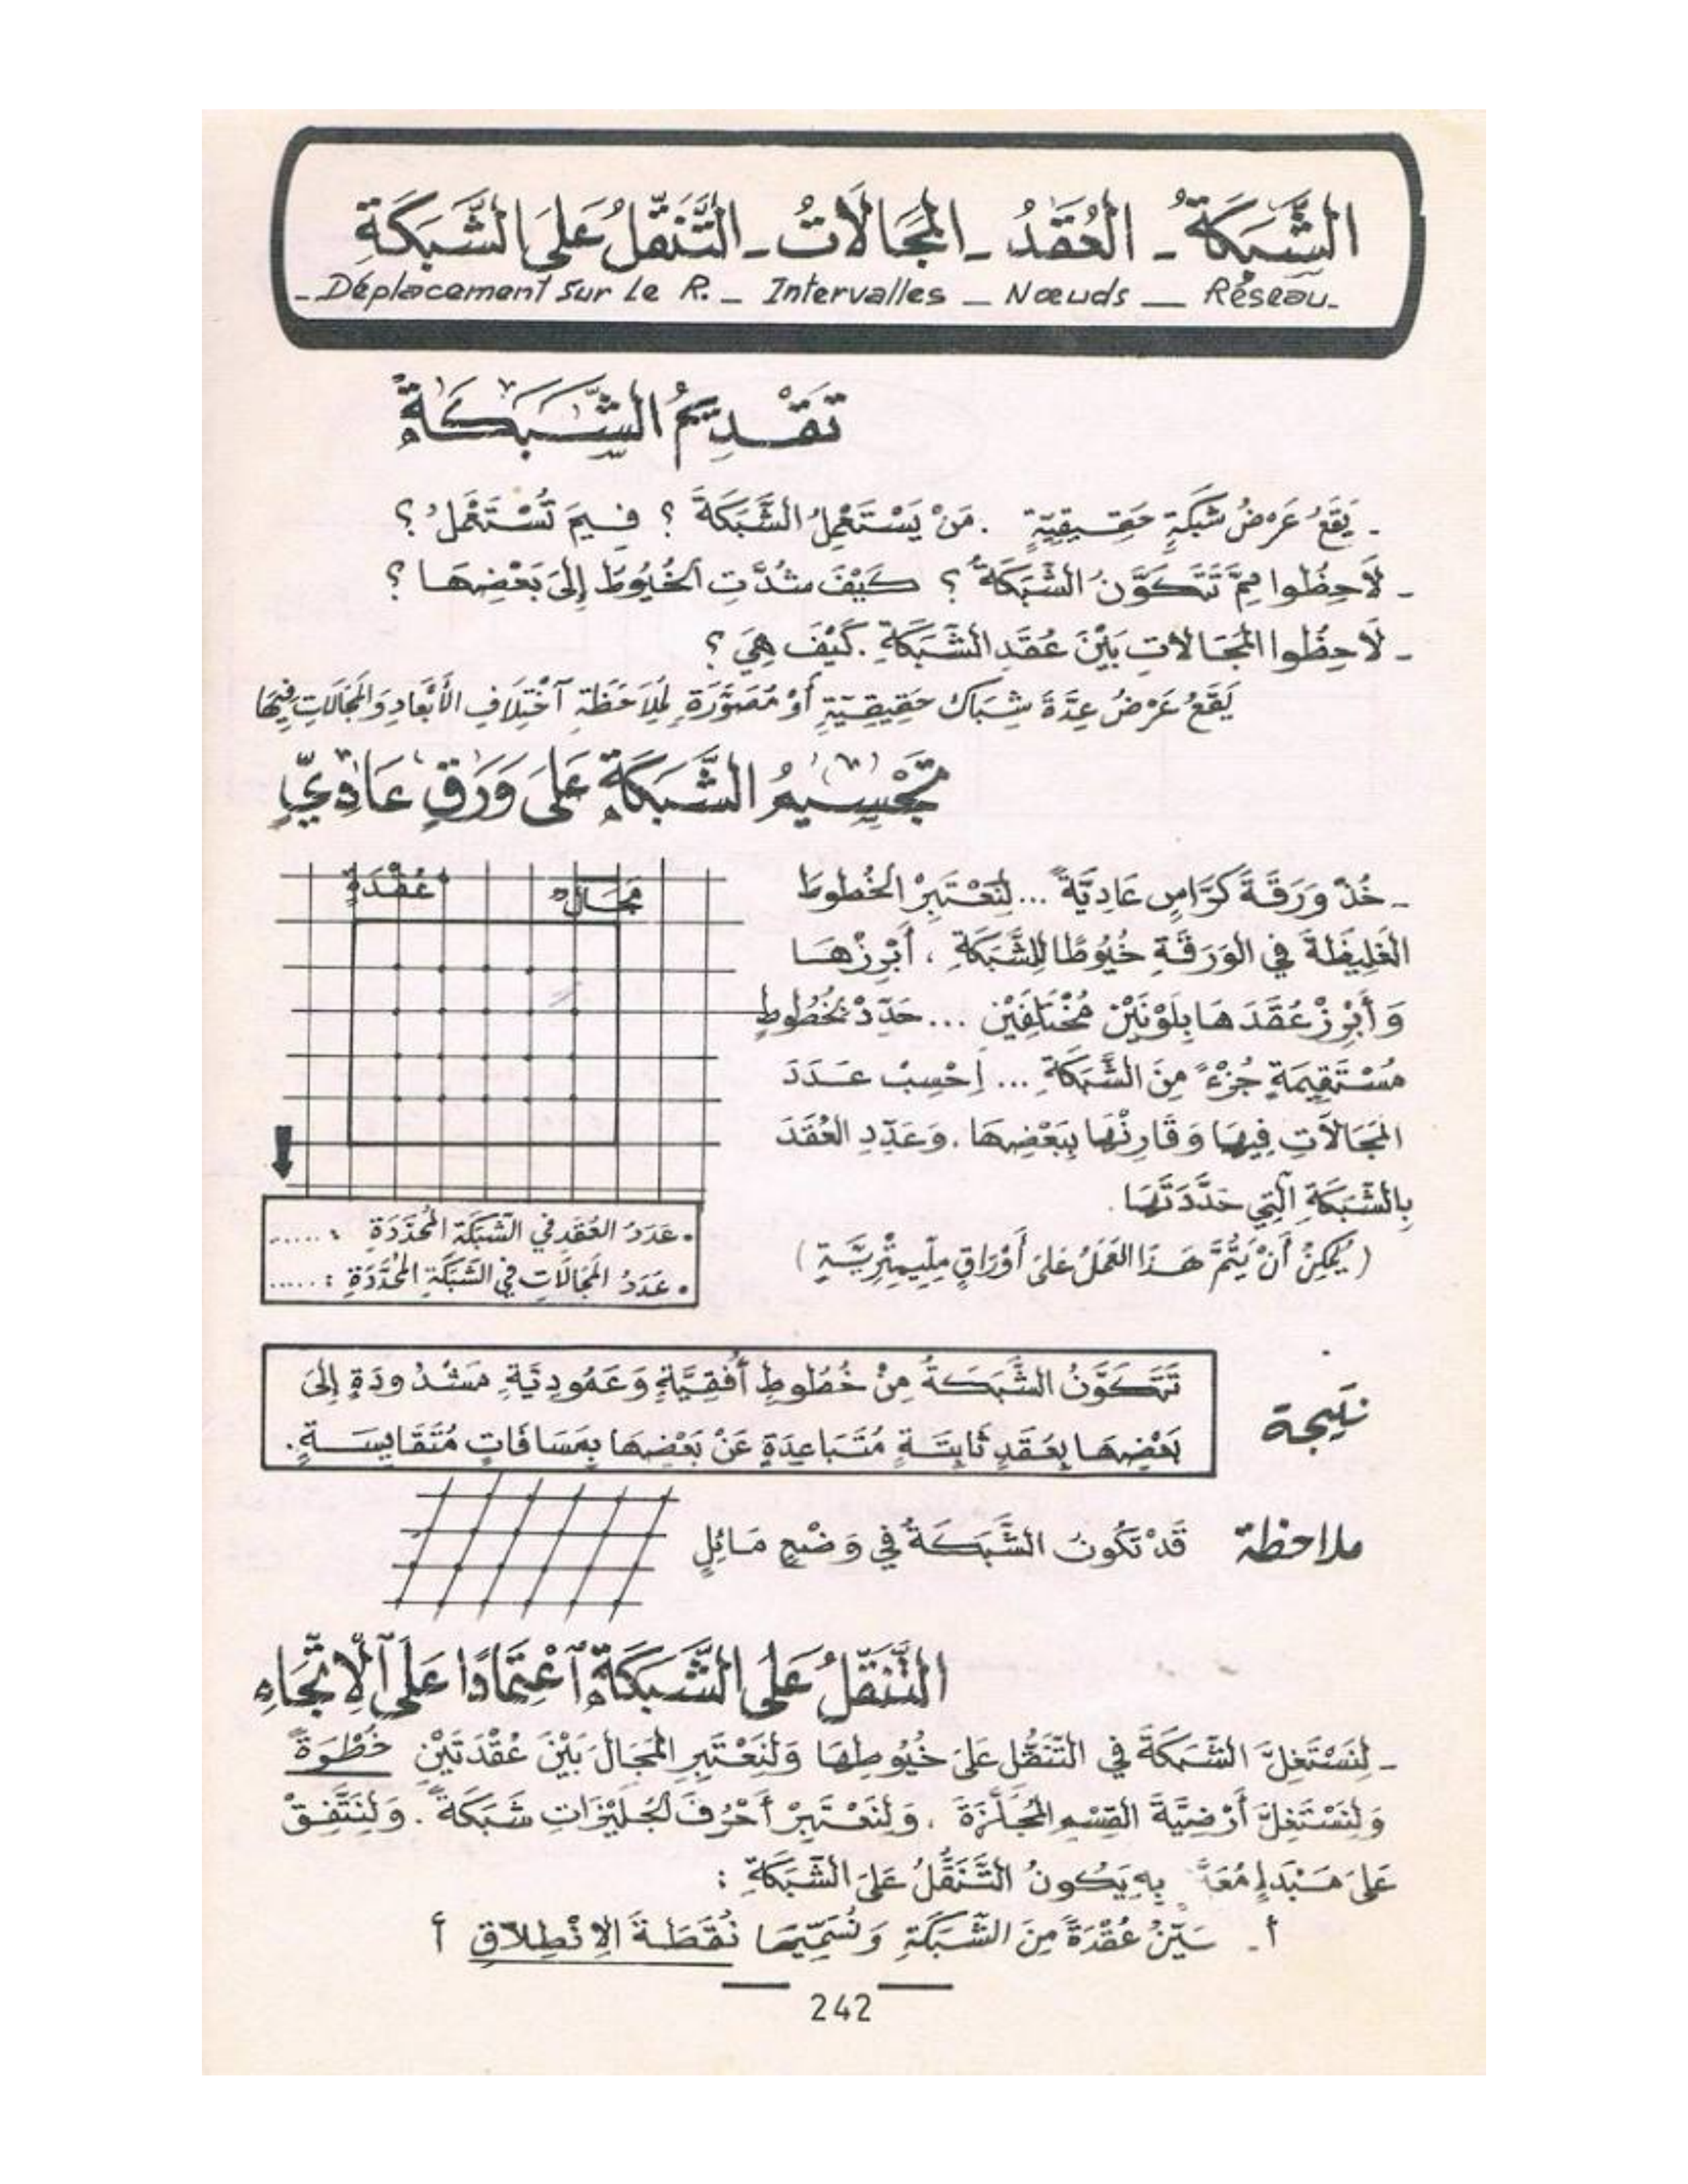 الشَّبَكَةُ - العُقَدُ - المَجَالَاتُ - التَّنَقُّلُ عَلَى الشَّبَكَةِ
- Déplacement Sur Le R. - Intervalles - Nœuds - Réseau -
تَقْدِيمُ الشَّبَكَةِ
- يَقَعُ عَرْضُ شَبَكَةٍ حَقِيقِيَّةٍ . مَنْ يَسْتَعْمِلُ الشَّبَكَةَ ؟ فِيمَ تُسْتَعْمَلُ ؟
- لَاحِظُوا مِمَّ تَتَكَوَّنُ الشَّبَكَةُ ؟ كَيْفَ شُدَّتِ الخُيُوطُ إِلَى بَعْضِهَا ؟
- لَاحِظُوا المَجَالَاتِ بَيْنَ عُقَدِ الشَّبَكَةِ . كَيْفَ هِيَ ؟
يَقَعُ عَرْضُ عِدَّةِ شِبَاك حَقِيقِيَّةٍ أَوْ مُصَوَّرَةٍ لِمُلَاحَظَةِ ٱخْتِلَافِ الأَبْعَادِ وَالمَجَالَاتِ فِيهَا
تَجْسِيمُ الشَّبَكَةِ عَلَى وَرَقٍ عَادِيٍّ
عُقْدَةٌ
مَجَالٌ
- خُذْ وَرَقَةَ كَرَّاسٍ عَادِيَّةً ... لِنَعْتَبِرْ الخُطُوطَ
الغَلِيظَةَ فِي الوَرَقَةِ خُيُوطًا لِلشَّبَكَةِ ، أَبْرِزْهَا
وَ أَبْرِزْ عُقَدَهَا بِلَوْنَيْنِ مُخْتَلِفَيْنِ ... حَدِّدْ بِخُطُوطٍ
مُسْتَقِيمَةٍ جُزْءً مِنَ الشَّبَكَةِ ... اِحْسِبْ عَدَدَ
المَجَالَاتِ فِيهَا وَ قَارِنْهَا بِبَعْضِهَا . وَ عَدِّدِ العُقَدَ
بِالشَّبَكَةِ الَّتِي حَدَّدْتَهَا .
( يُمْكِنُ أَنْ يَتِمَّ هَذَا العَمَلُ عَلَى أَوْرَاقٍ مِلِّيمِتْرِيَّةٍ )
• عَدَدُ العُقَدِ فِي الشَّبَكَةِ المُحَدَّدَةِ : .....
• عَدَدُ المَجَالَاتِ فِي الشَّبَكَةِ المُحَدَّدَةِ : .....
نتيجة
تَتَكَوَّنُ الشَّبَكَةُ مِنْ خُطُوطٍ أُفُقِيَّةٍ وَ عَمُودِيَّةٍ مَشْدُودَةٍ إِلَى
بَعْضِهَا بِعُقَدٍ ثَابِتَةٍ مُتَبَاعِدَةٍ عَنْ بَعْضِهَا بِمَسَافَاتٍ مُتَقَايِسَةٍ .
ملاحظة قَدْ تَكُونُ الشَّبَكَةُ فِي وَضْعٍ مَائِلٍ
التَّنَقُّلُ عَلَى الشَّبَكَةِ ٱعْتِمَادًا عَلَى ٱلِاتِّجَاهِ
- لِنَسْتَغِلَّ الشَّبَكَةَ فِي التَّنَقُّلِ عَلَى خُيُوطِهَا وَلْنَعْتَبِرِ المَجَالَ بَيْنَ عُقْدَتَيْنِ خُطْوَةً
وَ لْنَسْتَغِلَّ أَرْضِيَّةَ القِسْمِ المُجَلَّزَةَ ، وَ لْنَعْتَبِرْ أَحْرُفَ الجُلَيْزَاتِ شَبَكَةً . وَ لْنَتَّفِقْ
عَلَى مَبْدَإٍ مُعَدٍّ بِهِ يَكُونُ التَّنَقُّلُ عَلَى الشَّبَكَةِ :
أ - عُقْدَةً مِنَ الشَّبَكَةِ وَ نُسَمِّيهَا نُقْطَةَ الِانْطِلَاقِ أ
242